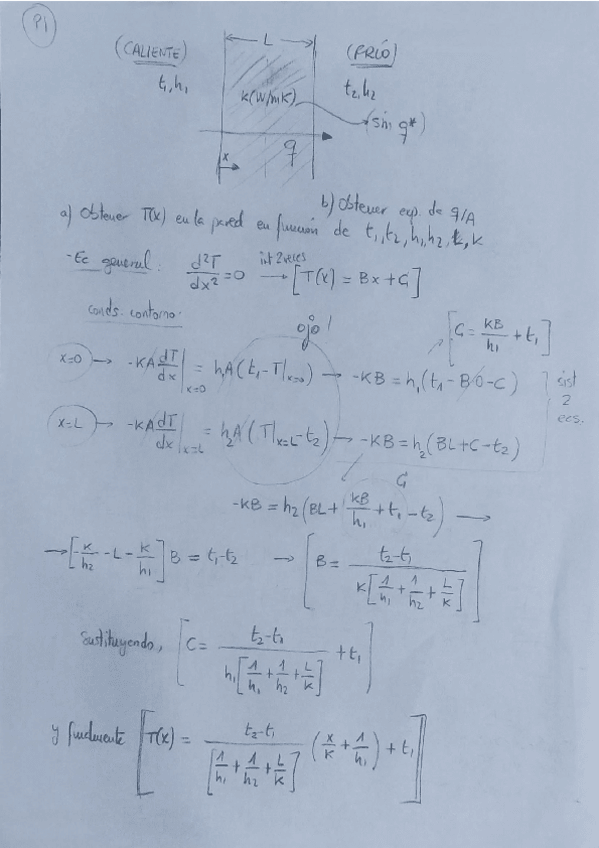 P1
L
(CALIENTE)
(FRÍO)
t₁,h₁
t₂,h₂
k(W/mK)
(sin q*)
q
x
a) Obtener T(x) en la pared en función de t₁,t₂,h₁,h₂,L,k
b) Obtener exp. de q/A
-Ec general: d²T/dx² = 0 int 2 veces → [T(x) = Bx + C]
conds. contorno:
ojo!
[C = kB/h₁ + t₁]
x=0 → -KA dT/dx|x=0 = h₁A(t₁-T|x=0) → -KB = h₁(t₁-B·0-C)
x=L → -KA dT/dx|x=L = h₂A(T|x=L-t₂) → -KB = h₂(BL+C-t₂)
sist 2 ecs.
C
-KB = h₂(BL + kB/h₁ + t₁-t₂) →
→ [-K/h₂ - L - K/h₁] B = t₁-t₂ → [B = (t₂-t₁) / (K[1/h₁ + 1/h₂ + L/K])]
Sustituyendo, [C = (t₂-t₁) / (h₁[1/h₁ + 1/h₂ + L/K]) + t₁]
y finalmente [T(x) = (t₂-t₁) / [1/h₁ + 1/h₂ + L/K] (x/K + 1/h₁) + t₁]